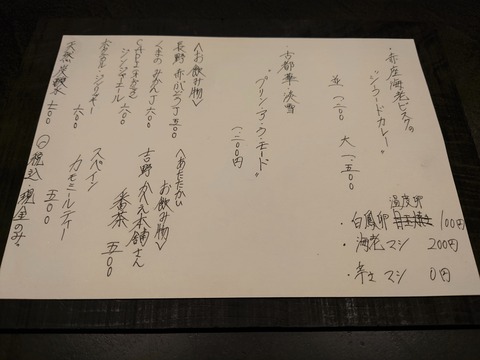 ・赤座海老ビスクの
"シーフードカレー"
並 一、二〇〇 大 一、五〇〇
温度卵
・白鳳卵 100円
・海老マシ 200円
・辛さマシ 0円
・古都華淡雪
"プリン・ア・ラ・モード"
一、二〇〇円
〈お飲み物〉
長野 赤小ぶどうJ 五〇〇
くまの みかんJ 六〇〇
ジンジャーエール 六〇〇
ジンジャー 六〇〇
天然炭酸水
〈あたたかい
お飲み物〉
吉野 かへえ本舗さん
番茶 五〇〇
スペイン
カモミールティー
五〇〇
税込・現金のみ。